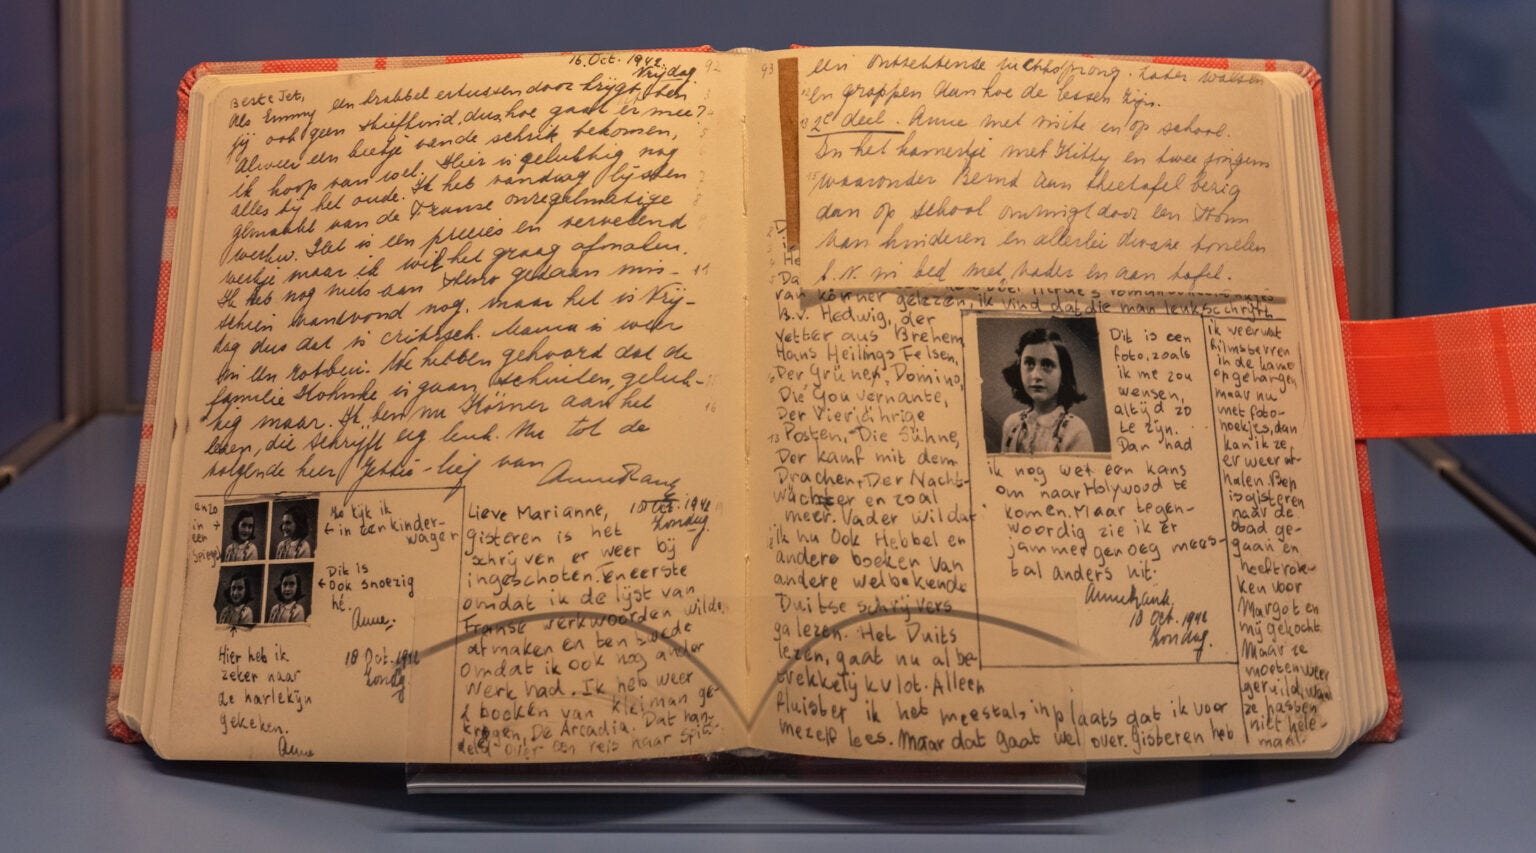 16 Oct. 1942.
Vrijdag.
92
Beste Jet,
Als Emmy een krabbel ertussen door krijgt, ben
jij ook geen stiefkind, dus hoe gaat er mee?
Alweer een beetje van de schrik bekomen,
ik hoop van wel. Hier is gelukkig nog
alles bij het oude. Ik heb vandaag lijsten
gemaakt van de Franse onregelmatige
werkw. Het is een precies en vervelend
werkje maar ik wil het graag afmaken.
Ik heb nog niets aan Steno gedaan mis-
schien vanavond nog, maar het is Vrij-
dag dus dat is critisch. Mama is weer
in een rotbui. We hebben gehoord dat de
familie Kohnke is gaan schuilen, geluk-
kig maar. Ik ben nu Körner aan het
lezen, die schrijft erg leuk. Nu tot de
volgende keer Jetje-lief van
Anne Frank
en zo
in
een
spiegel
Zo kijk ik
in een kinder-
wagen
Dit is
ook snoezig
hé.
Anne.
Hier heb ik
zeker naar
de harlekijn
gekeken.
Anne
18 Oct. 1942
Zondag
Lieve Marianne,
18 Oct. 1942
Zondag.
gisteren is het
schrijven er weer bij
ingeschoten. Teneerste
omdat ik de lijst van
Franse werkwoorden wilde
afmaken en ten tweede
omdat ik ook nog ander
werk had. Ik heb weer
2 boeken van Kleiman ge-
kregen, De Arcadia. Dat han-
delt over een reis naar Spits-
93
een ontzettende luchtsprong. Later walsen
en grappen dan hoe de lessen zijn.
2e deel. Anne met visite en op school.
In het kamertje met Kitty en twee jongens
waaronder Bernd aan theetafel bezig
dan op school omringt door een drom
van kinderen en allerlei dwaze tonelen
b.v. in bed met vader en aan tafel.
He
Da
van Körner gelezen, ik vind dat die man leuk schrijft
B.v. Hedwig, der
Vetter aus Brehem,
Hans Heilings Felsen,
Der Grünen, Domino,
Die Gouvernante,
Der Vierjährige
Posten, Die Sühne,
Der Kamf mit dem
Drachen, Der Nacht-
wächter en zoal
meer. Vader wil dat
ik nu ook Hebbel en
andere boeken van
andere welbekende
Duitse schrijvers
ga lezen. Het Duits
lezen, gaat nu al be-
trekkelijk vlot. Alleen
fluister ik het meestals in plaats dat ik voor
mezelf lees. Maar dat gaat wel over. Gisteren heb
Dit is een
foto, zoals
ik me zou
wensen,
altijd zo
te zijn.
Dan had
ik nog wel een kans
om naar Holywood te
komen. Maar tegen-
woordig zie ik er
jammer genoeg mees-
tal anders uit.
Anne Frank.
18 Oct. 1942
Zondag.
ik weer wat
filmsterren
in de kamer
opgehangen
maar nu
met foto-
hoekjes, dan
kan ik ze
er weer af-
halen. Bep
is gisteren
naar de
stad ge-
gaan en
heeft rok-
ken voor
Margot en
mij gekocht.
Maar ze
moeten weer
geruild, want
ze passen
niet hele-
maal.